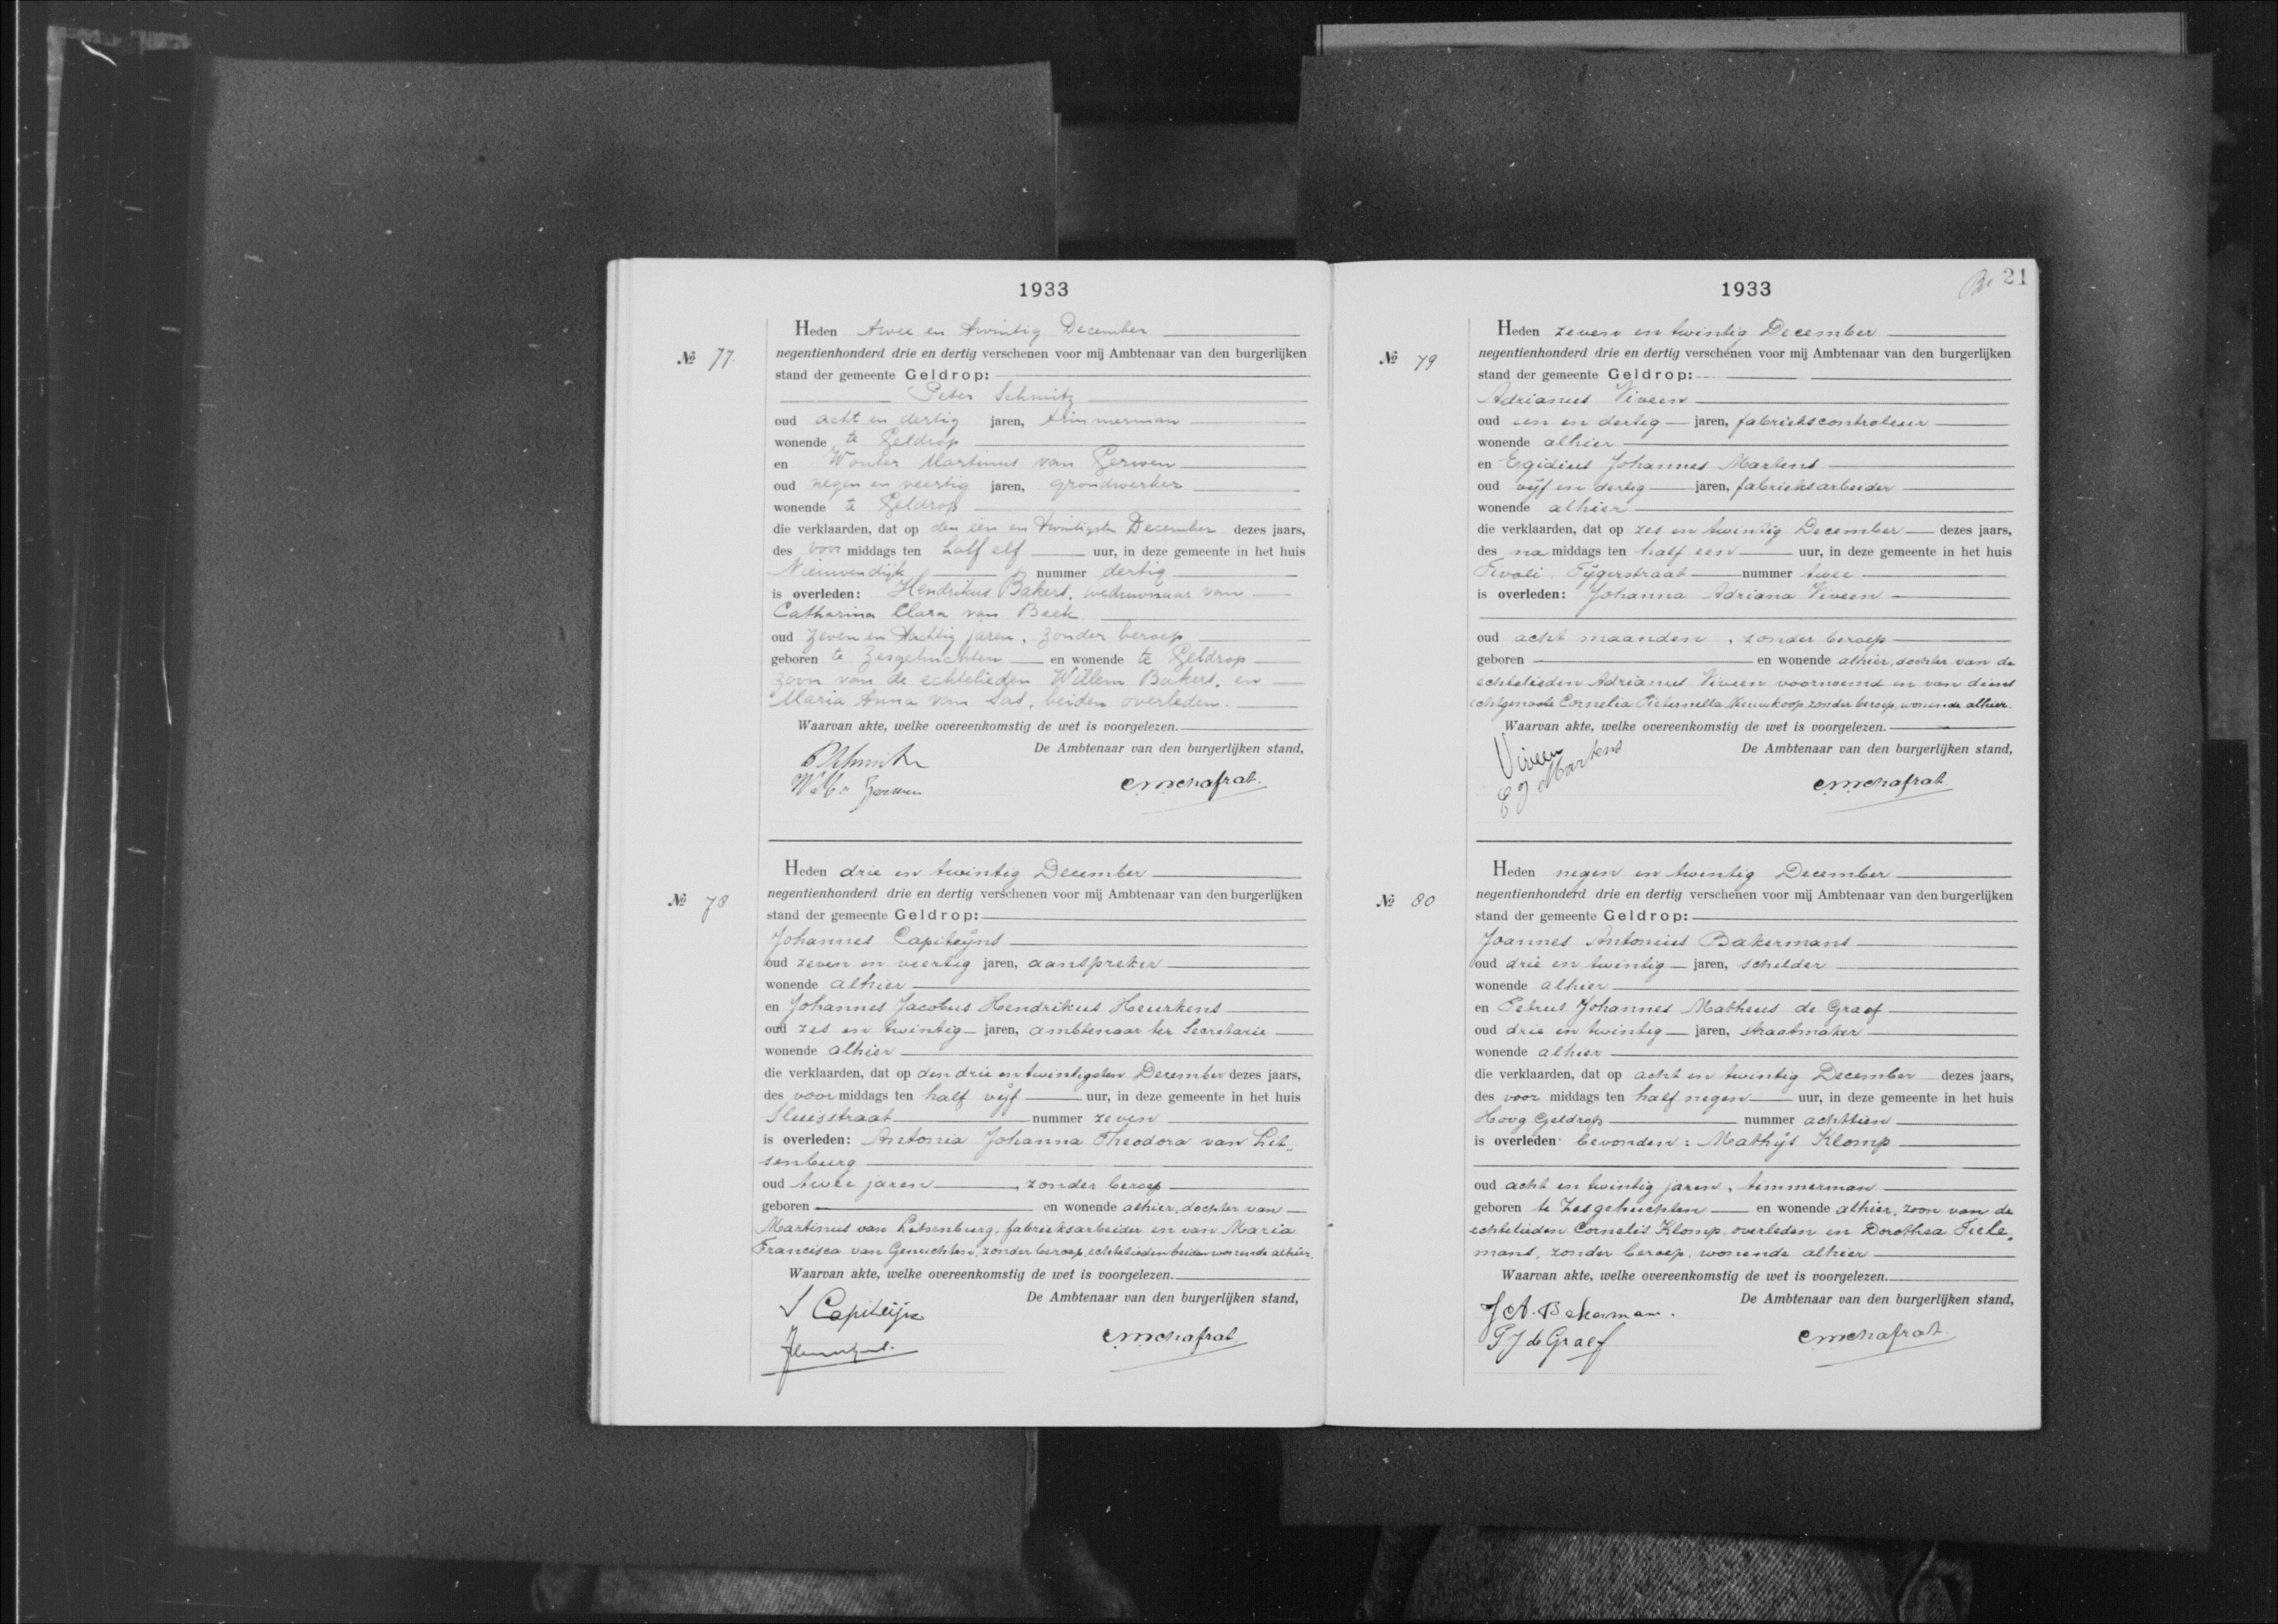 1933
Heden twee en twintig December
№ 77.
negentienhonderd drie en dertig verschenen voor mij Ambtenaar van den burgerlijken
stand der gemeente Geldrop:
Peter Schmitz
oud acht en dertig jaren, timmerman
wonende te Geldrop
en Wouter Martinus van Gerwen
oud negen en veertig jaren, grondwerker
wonende te Geldrop
die verklaarden, dat op den een en twintigste December dezes jaars,
des voor middags ten half elf uur, in deze gemeente in het huis
Nieuwendijk nummer dertig
is overleden: Hendrikus Bakers, weduwnaar van
Catharina Clara van Beek
oud zeven en tachtig jaren, zonder beroep
geboren te Zesgehuchten en wonende te Geldrop
zoon van de echtelieden Willem Bakers, en
Maria Anna van Sas, beiden overleden.
Waarvan akte, welke overeenkomstig de wet is voorgelezen.
De Ambtenaar van den burgerlijken stand,
PSchmitz
Gerwen
Heden drie en twintig December
№ 78
negentienhonderd drie en dertig verschenen voor mij Ambtenaar van den burgerlijken
stand der gemeente Geldrop:
Johannes Capiteÿns
oud zeven en veertig jaren, aanspreker
wonende alhier
en Johannes Jacobus Hendrikus Heurkens
oud zes en twintig jaren, ambtenaar ter Secretarie
wonende alhier
die verklaarden, dat op den drie en twintigsten December dezes jaars,
des voor middags ten half vijf uur, in deze gemeente in het huis
Sluisstraat nummer zeven
is overleden: Antonia Johanna Theodora van Lit„
senburg
oud twee jaren, zonder beroep
geboren en wonende alhier, dochter van
Martinus van Litsenburg, fabrieksarbeider en van Maria
Francisca van Genuchten, zonder beroep, echtelieden beiden wonende alhier.
Waarvan akte, welke overeenkomstig de wet is voorgelezen.
De Ambtenaar van den burgerlijken stand,
J Capiteijns
21
1933
Heden zeven en twintig December
№ 79
negentienhonderd drie en dertig verschenen voor mij Ambtenaar van den burgerlijken
stand der gemeente Geldrop:
Adrianus Viveen
oud een en dertig jaren, fabriekscontroleur
wonende alhier
en Egidius Johannes Martens
oud vijf en dertig jaren, fabrieksarbeider
wonende alhier
die verklaarden, dat op zes en twintig December dezes jaars,
des na middags ten half een uur, in deze gemeente in het huis
Tivoli Tijgerstraat nummer twee
is overleden: Johanna Adriana Viveen
oud acht maanden, zonder beroep
geboren en wonende alhier, dochter van de
echtelieden Adrianus Viveen voornoemd en van diens
echtgenoote Cornelia Pieternella Nieuwkoop, zonder beroep, wonende alhier.
Waarvan akte, welke overeenkomstig de wet is voorgelezen.
De Ambtenaar van den burgerlijken stand,
Viveen
E J Martens
Heden negen en twintig December
№ 80
negentienhonderd drie en dertig verschenen voor mij Ambtenaar van den burgerlijken
stand der gemeente Geldrop:
Joannes Antonius Bakermans
oud drie en twintig jaren, schilder
wonende alhier
en Petrus Johannes Matheus de Graaf
oud drie en twintig jaren, straatmaker
wonende alhier
die verklaarden, dat op acht en twintig December dezes jaars,
des voor middags ten half negen uur, in deze gemeente in het huis
Hoog Geldrop nummer achttien
is overleden bevonden: Mathijs Klomp
oud acht en twintig jaren, timmerman
geboren te Zesgehuchten en wonende alhier, zoon van de
echtelieden Cornelis Klomp, overleden en Dorothea Tiele„
mans, zonder beroep, wonende alhier
Waarvan akte, welke overeenkomstig de wet is voorgelezen.
De Ambtenaar van den burgerlijken stand,
J A. Bakermans.
P J de Graaf